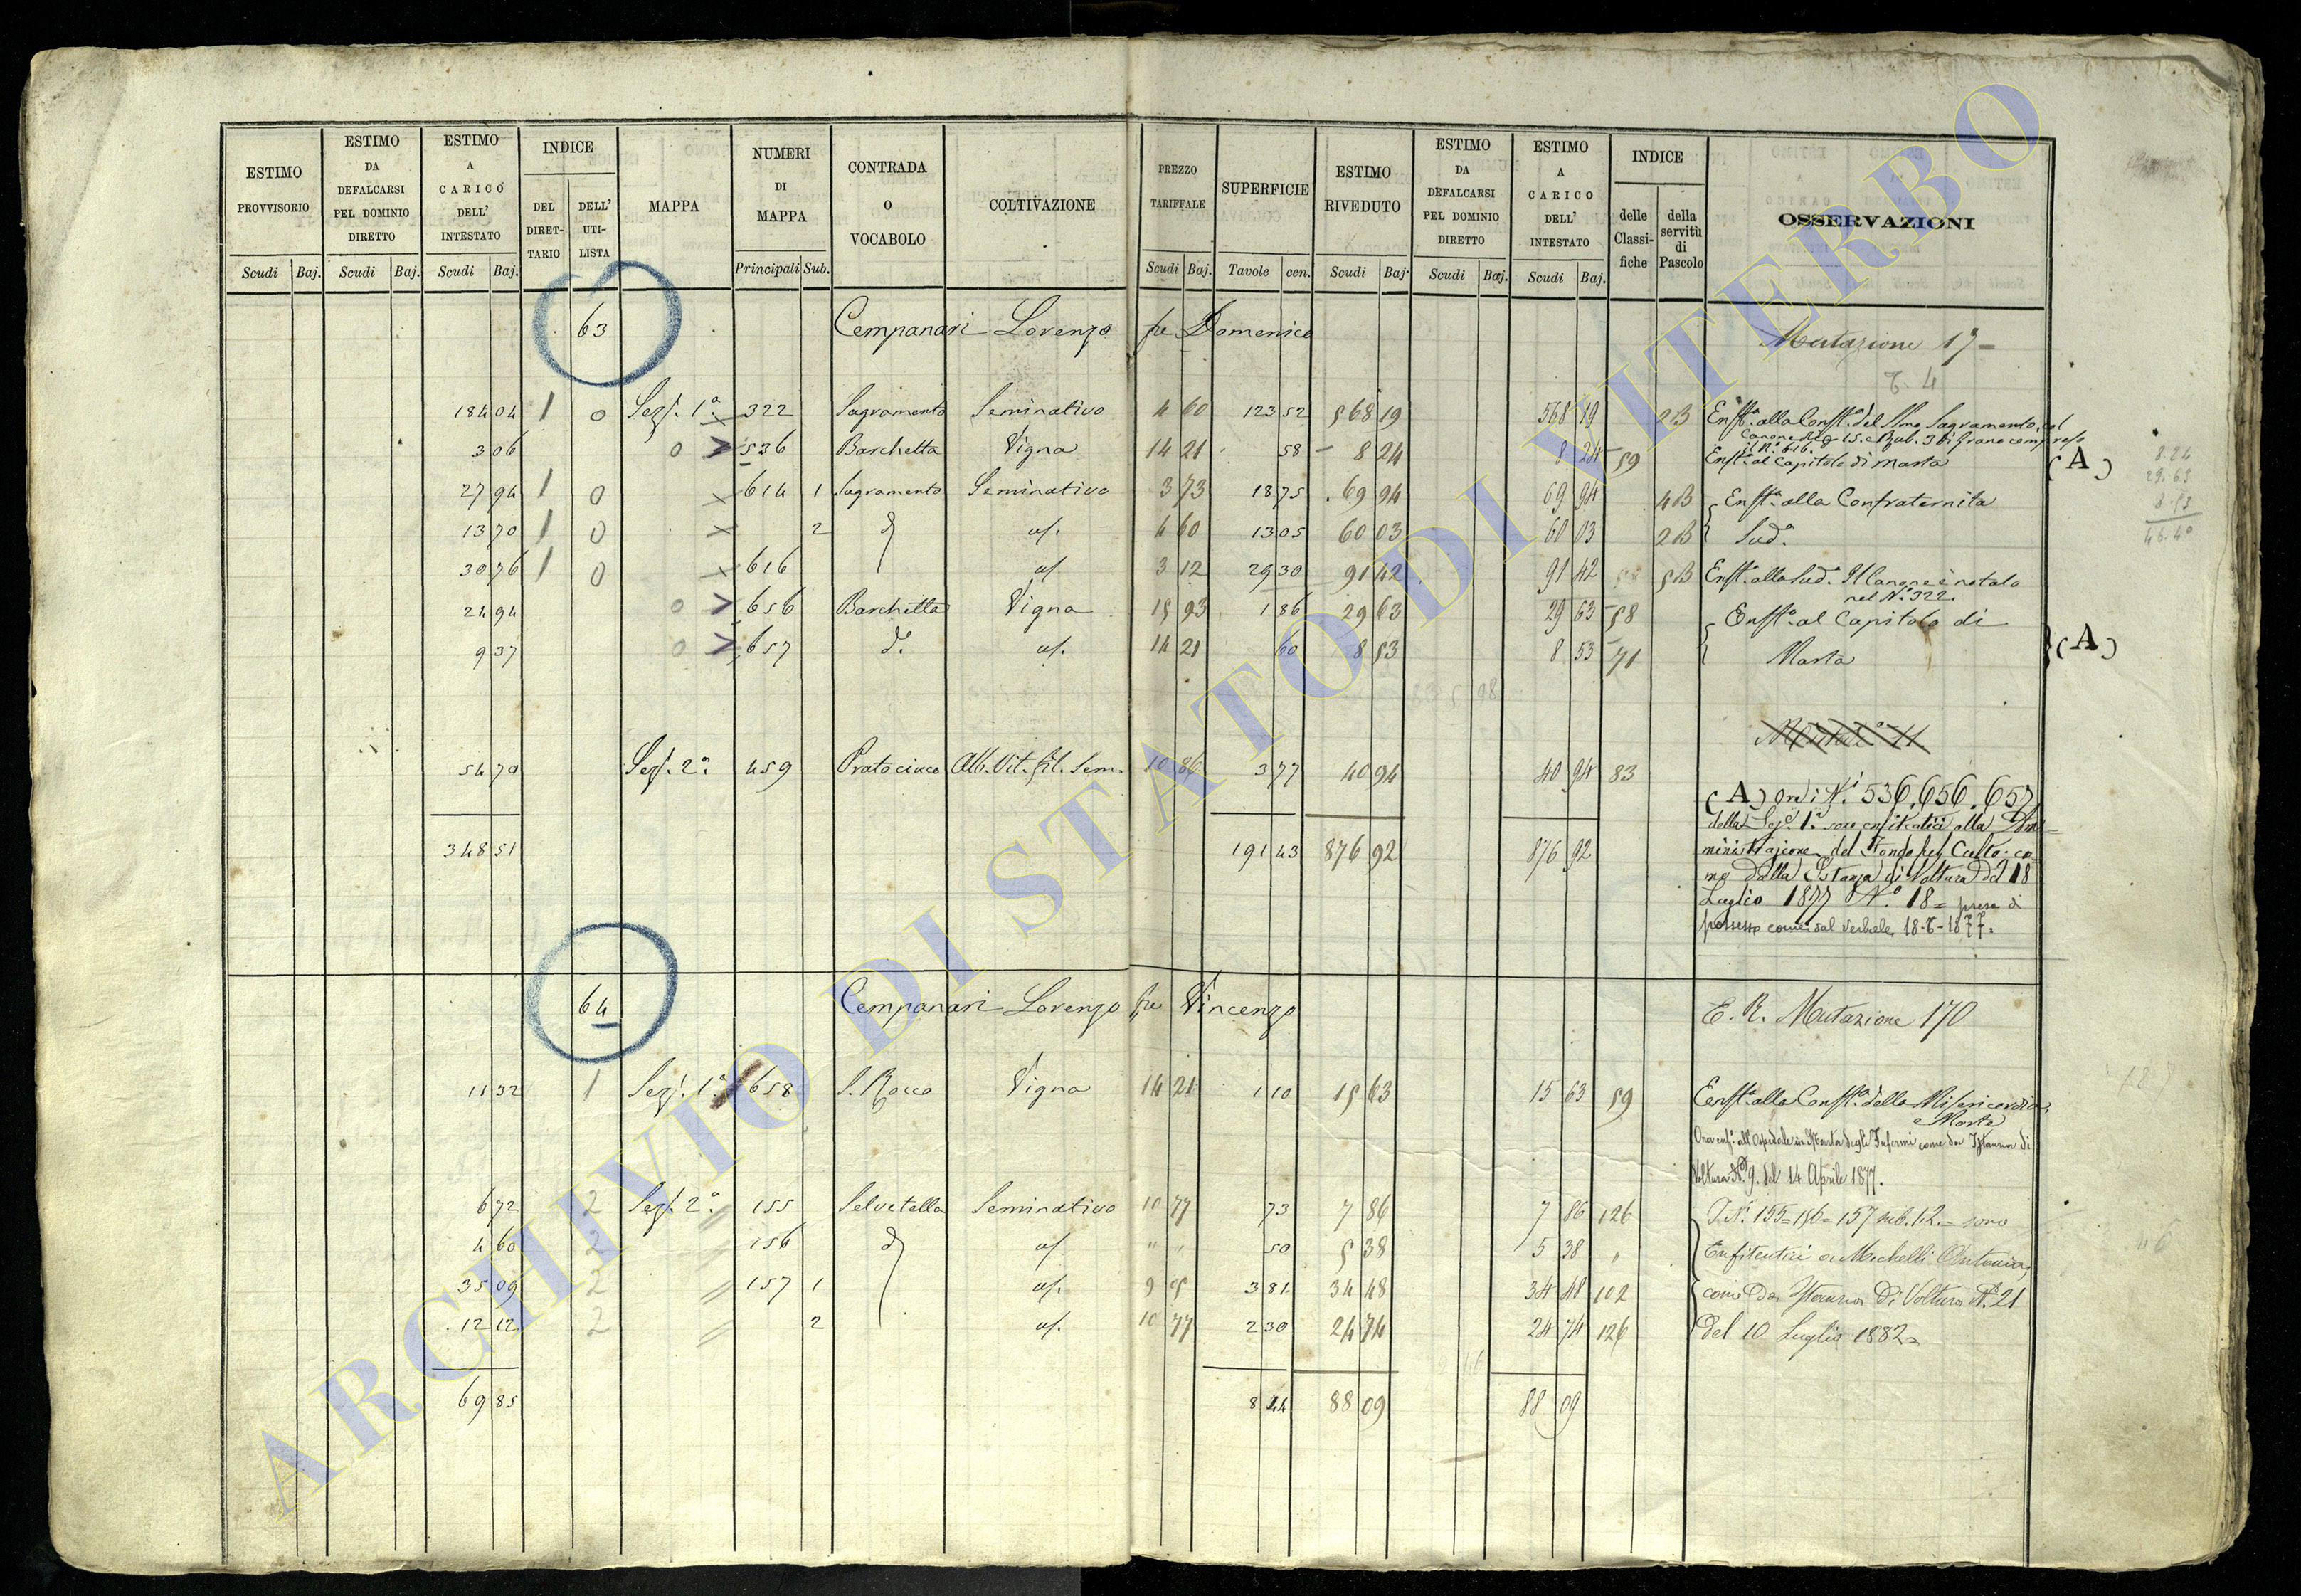 ESTIMO PROVVISORIO
ESTIMO DA DEFALCARSI PEL DOMINIO DIRETTO
ESTIMO A CARICO DELL' INTESTATO
INDICE
DEL DIRETTARIO
DELL' UTILISTA
MAPPA
NUMERI DI MAPPA
CONTRADA O VOCABOLO
COLTIVAZIONE
PREZZO TARIFFALE
SUPERFICIE
ESTIMO RIVEDUTO
ESTIMO DA DEFALCARSI PEL DOMINIO DIRETTO
ESTIMO A CARICO DELL' INTESTATO
INDICE
delle Classifiche
della servitù di Pascolo
OSSERVAZIONI
Scudi Baj. Scudi Baj. Scudi Baj. Principali Sub. Scudi Baj. Tavole cen. Scudi Baj. Scudi Baj. Scudi Baj.
63 Campanari Lorenzo fu Domenico Mutazione 17
184 04 1 0 Sez. 1ª 322 Sagramento Seminativo 4 60 123 52 568 19 568 19 2B
3 06 0 V 536 Barchetta Vigna 14 21 58 8 24 8 24 59 Enfª al Capitolo di Marta (A)
27 94 1 0 614 1 Sagramento Seminativo 3 73 18 75 69 94 69 94 4B Enfª alla Confraternita
13 70 1 0 2 4 60 13 05 60 03 60 03 2B Sudª
30 76 1 0 616 3 12 29 30 91 42 91 42 5B Enfª alla Sudª Il Canone è notato
nel N.º 322.
24 94 0 V 656 Barchetta Vigna 15 93 1 86 29 63 29 63 58 Enfª al Capitolo di
9 37 0 V 657 dº 14 21 60 8 53 8 53 71 Marta (A)
54 70 Sez. 2ª 459 Alb. Vit. fil. Sem. 10 86 3 77 40 94 40 94 83
348 51 191 43 876 92 876 92
(A) Ora i Nⁱ 536, 656, 657
della Sezᵉ 1ª sono enfiteutici alla Am=
ministrazione del Fondo pel Culto co=
me dalla Istanza di Voltura del 18
Luglio 1877 N.º 18 = presa di
possesso come dal Verbale
64 Campanari Lorenzo fu Vincenzo E. R. Mutazione 170
11 32 1 Sez. 1ª 658 S. Rocco Vigna 14 21 1 10 15 63 15 63 59 Enfª alla Confª della Misericordia
e Morte
Ora enfª all'Ospedale in Marta degli Infermi come da Istanza di
Voltura Nº 9. del 14 Aprile 1877.
6 72 2 Sez. 2ª 155 Selvetella Seminativo 10 77 73 7 86 7 86 126 I Nⁱ 155=156=157 sub. 1.2.= sono
4 60 2 156 " " 50 5 38 5 38 " Enfiteutici a Antonio,
35 09 2 157 1 3 81 34 48 34 48 102 come da Istanza di Voltura Nº 21
12 12 2 2 10 77 2 30 24 74 24 74 126 del 10 Luglio 1882=
69 85 8 44 88 09 88 09
8.24
29.63
8.53
46.40
ARCHIVIO DI STATO DI VITERBO